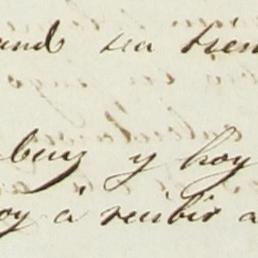 and sea tien
ben y hoy
oy á recibir a